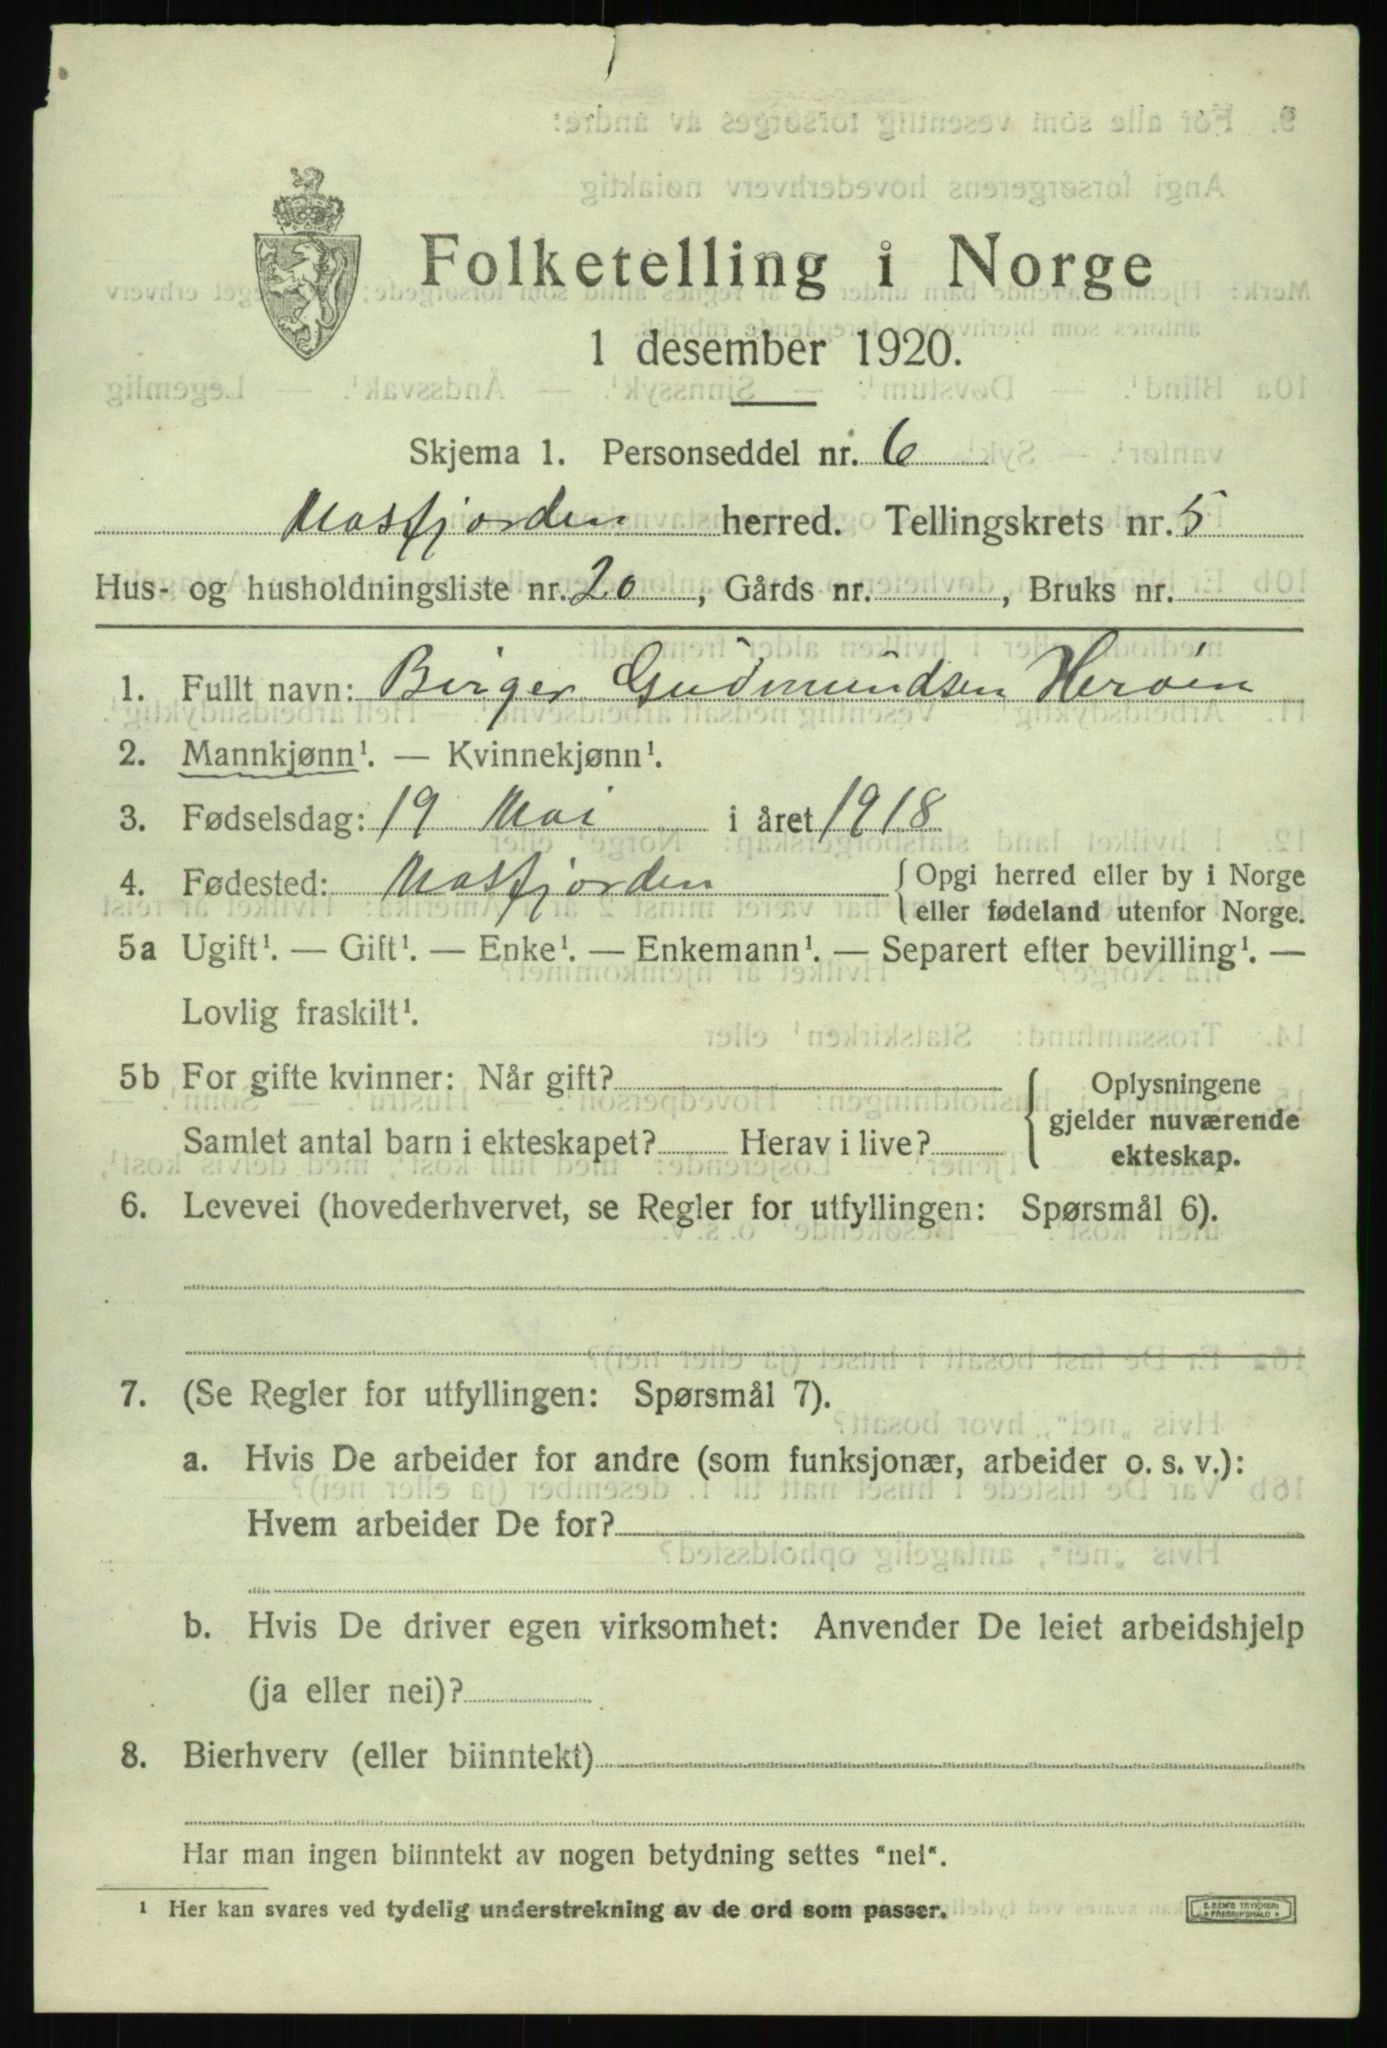 Folketelling i Norge
1 desember 1920.
Skjema 1. Personseddel nr. 6
Masfjorden herred. Tellingskrets nr. 5
Hus- og husholdningsliste nr. 20, Gårds nr. , Bruks nr.
1. Fullt navn: Birger Gudmundsen Herøien
2. Mannkjønn¹. — Kvinnekjønn¹.
3. Fødselsdag: 19 Mai i året 1918
4. Fødested: Masfjorden { Opgi herred eller by i Norge
eller fødeland utenfor Norge.
5a Ugift¹. — Gift¹. — Enke¹. — Enkemann¹. — Separert efter bevilling¹. —
Lovlig fraskilt¹.
5b For gifte kvinner: Når gift?
Samlet antal barn i ekteskapet? Herav i live?
Oplysningene
gjelder nuværende
ekteskap.
6. Levevei (hovederhvervet, se Regler for utfyllingen: Spørsmål 6).
7. (Se Regler for utfyllingen: Spørsmål 7).
a. Hvis De arbeider for andre (som funksjonær, arbeider o. s. v.):
Hvem arbeider De for?
b. Hvis De driver egen virksomhet: Anvender De leiet arbeidshjelp
(ja eller nei)?
8. Bierhverv (eller biinntekt)
Har man ingen biinntekt av nogen betydning settes "nei".
¹ Her kan svares ved tydelig understrekning av de ord som passer.